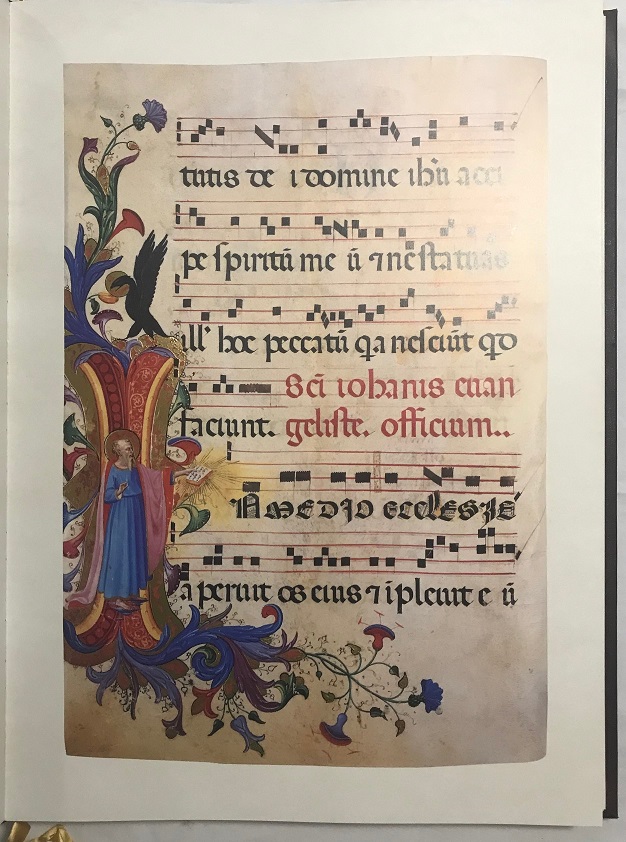 tutis de i domine ihu acci
pe spiritū me ū ⁊ ne statuas
ill' hoc peccatū qa nesciūt qd
Scī iohanis euan
faciunt. geliste. officium..
IN MEDIO ECCLESIE
aperuit os eius ⁊ ipleuit e ū